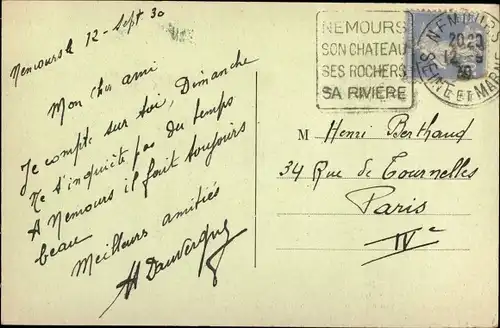 Nemours le 12 - Sept 30
Mon cher ami
Je compte sur toi, Dimanche
Ne t'inquiète pas du temps
A Nemours il fait toujours
beau
Meilleurs amitiés
H Dauvergne
NEMOURS
SON CHATEAU
SES ROCHERS
SA RIVIÈRE
NEMOURS
SEINE ET MARNE
M Henri Berthaud
34 Rue de Tournelles
Paris
IVe